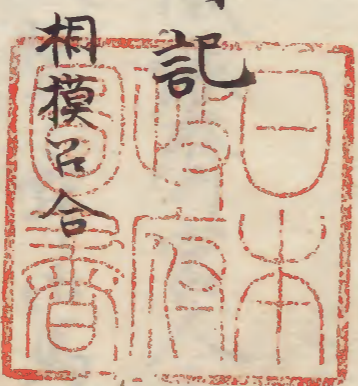 記
相摸召合
日本
政府
圖書